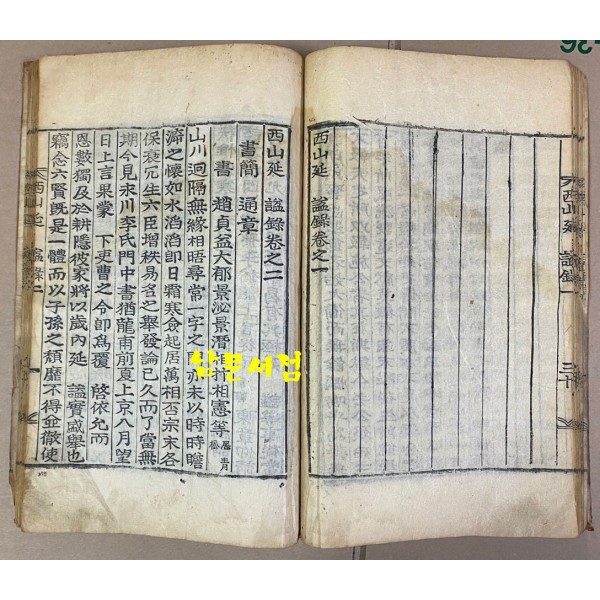 西山延 諡錄 一
三十
西山延 諡錄卷之一
西山延 諡錄卷之二
書簡 通章
書 趙貞益大郁景泌景潛 相憲等 居青松
山川逈隔無緣相晤尋常一字之 亦未以時時瞻
濟之懷如水滔滔即日霜寒僉起居萬相否宗末各
保衰冗生六臣增秩易名之擧發論已久而了當無
期今見永川李氏門中書猶龍甫前夏上京八月望
日上言果蒙 下吏曹之令卽爲覆 啓依允而
恩數獨及於耕隱彼家將以歲內延 諡實盛擧也
竊念六賢旣是一體而以子孫之頹靡不得並徹使
西山延 諡錄 二
남문서점